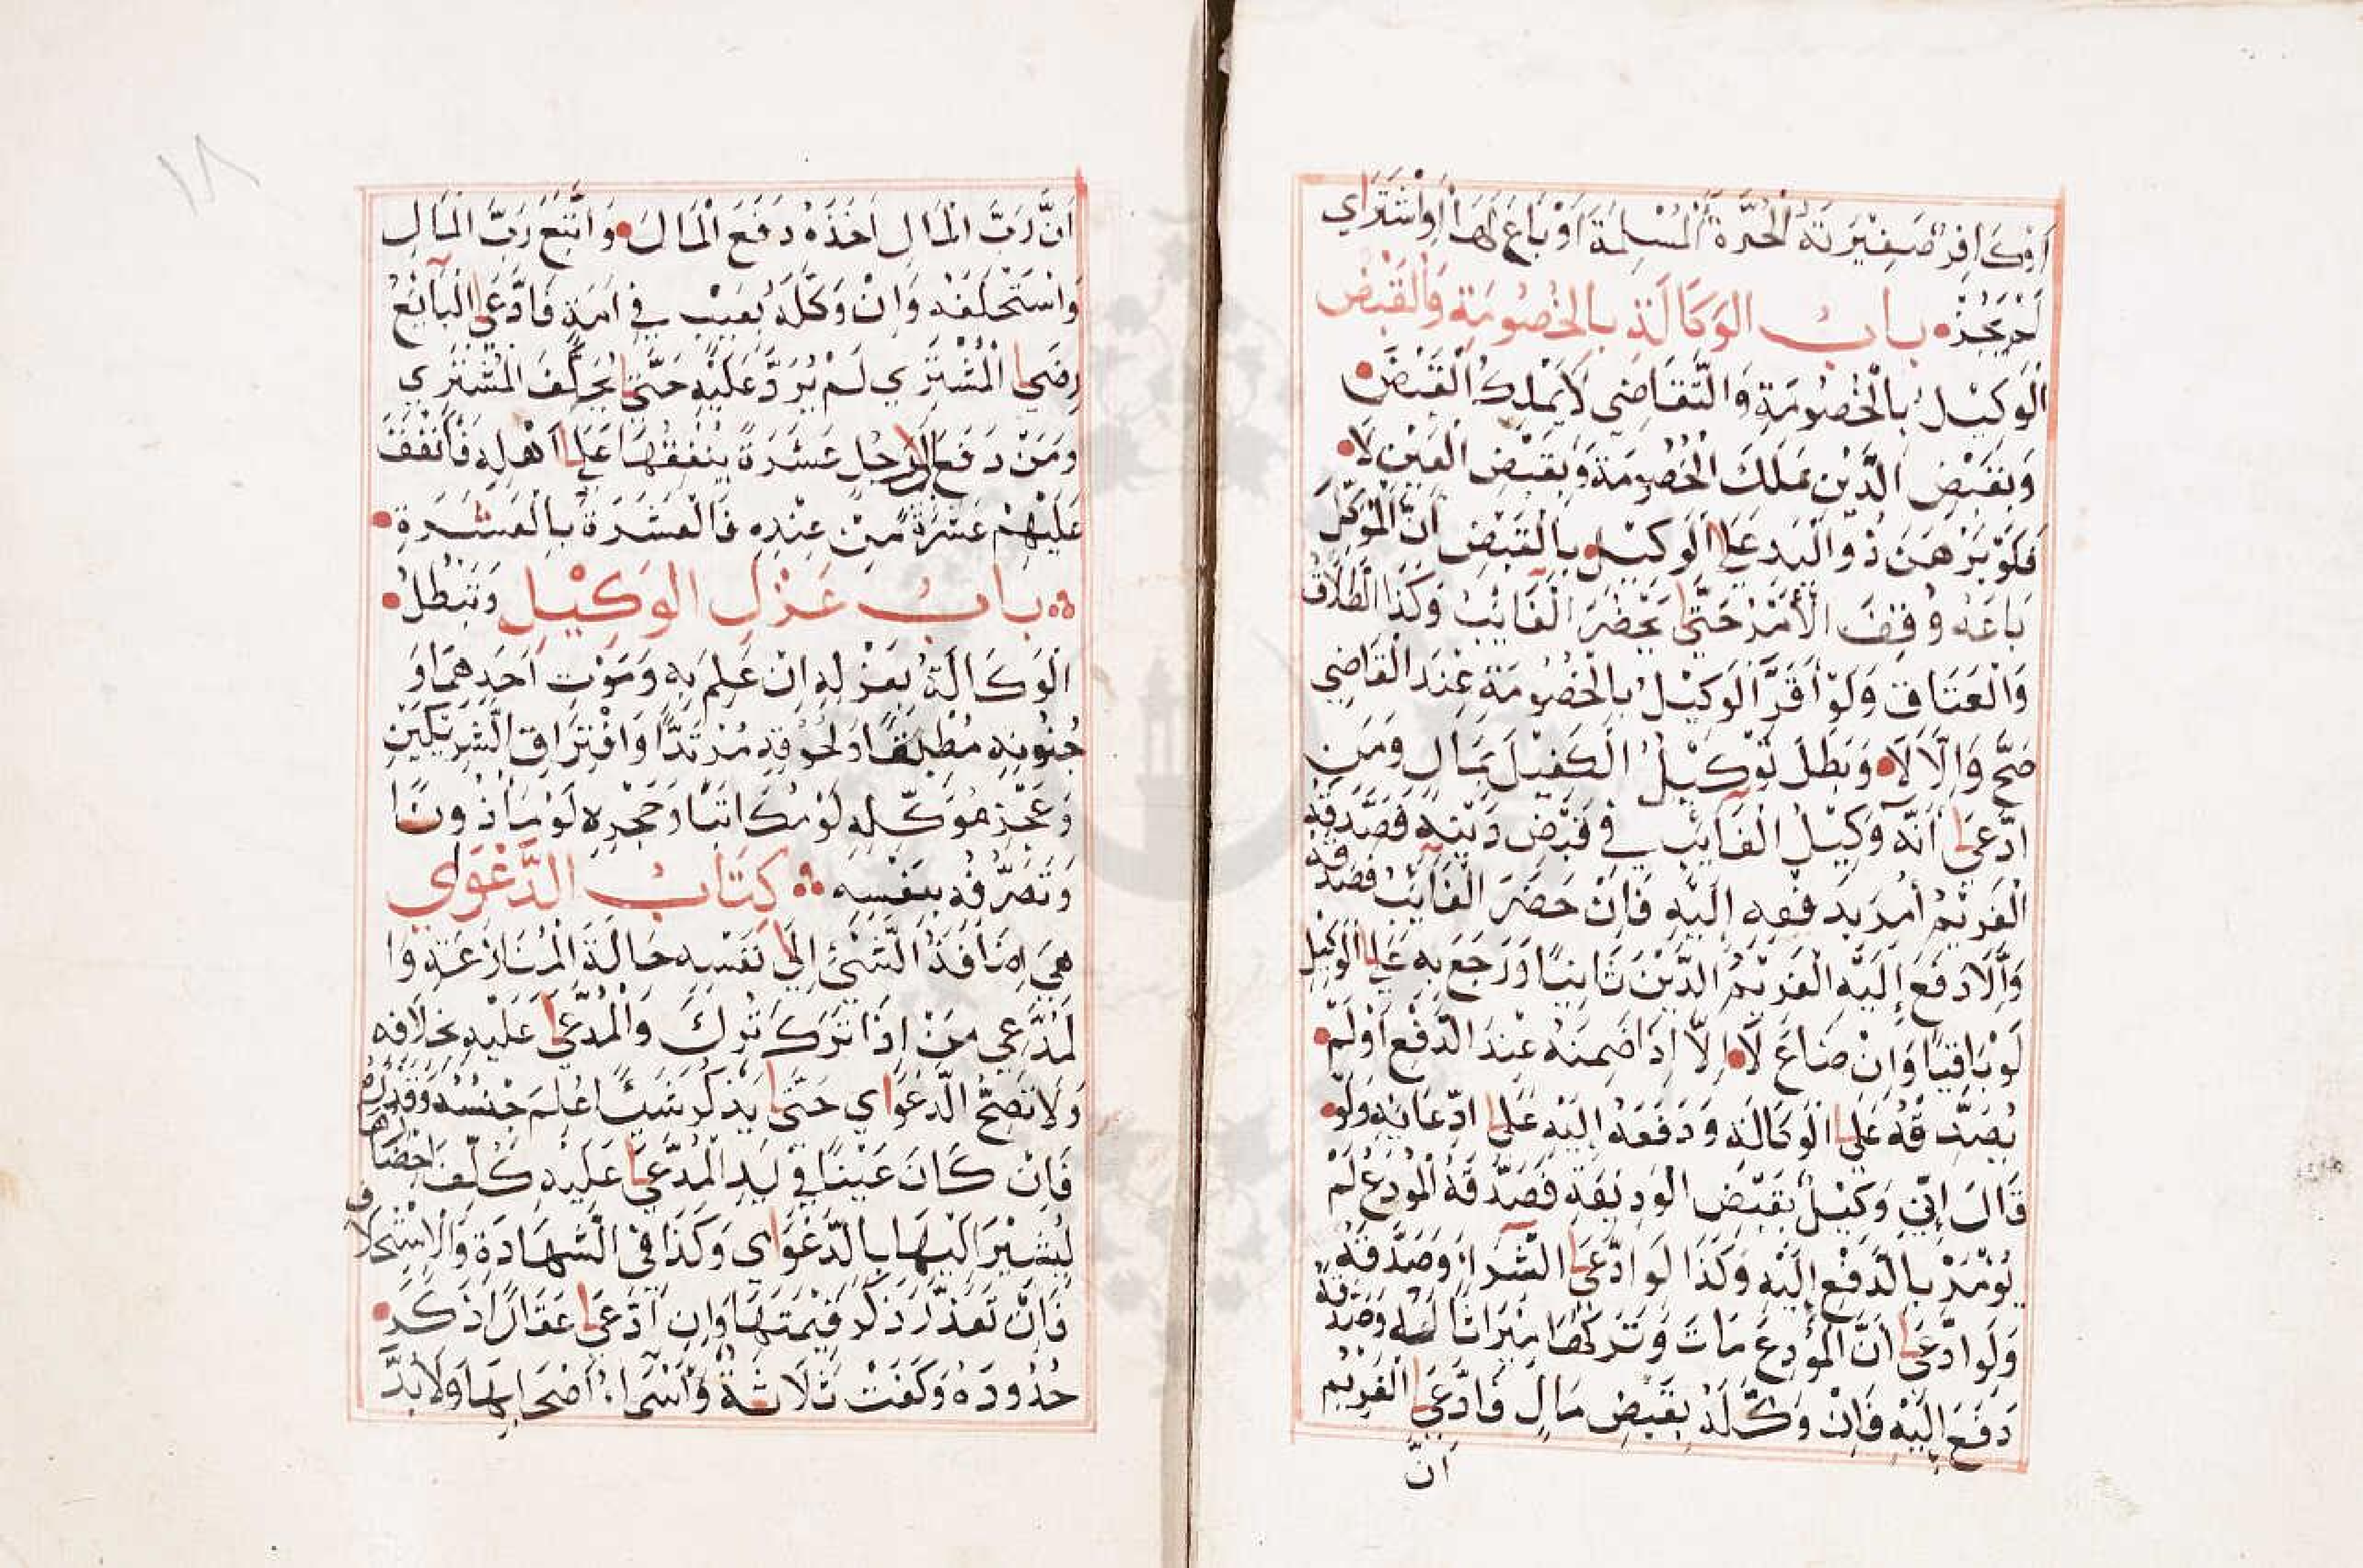 اَوْ كَافِرٌ صَغِيْرَتَهُ الْحُرَّةَ الْمُسْلِمَةَ اَوْ بَاعَ لَهَا اَوِ اشْتَرَاي
لَمْ يَجُزْ بابُ الوَكَالَةِ بالخُصُومَةِ وَالْقَبْضِ
اَلْوَكِيْلُ بِالْخُصُومَةِ وَالتَّقَاضِي لَا يَمْلِكُ الْقَبْضَ
وَبِقَبْضِ الدَّيْنِ مَلَكَ الْخُصُومَةَ وَبِقَبْضِ الْعَيْنِ لَا
فَلَوْ بَرْهَنَ ذُو الْيَدِ عَلَى الْوَكِيْلِ بِالْقَبْضِ اَنَّ الْمُوَكِّلَ
بَاعَهُ وُقِفَ الْاَمْرُ حَتَّى يَحْضُرَ الْغَايِبُ وَكَذَا الطَّلَاقُ
وَالْعَتَاقُ وَلَوْ أَقَرَّ الْوَكِيْلُ بِالْخُصُومَةِ عِنْدَ الْقَاضِي
صَحَّ وَاِلَّا لَا وَبَطَلَ تَوْكِيْلُ الْكَفِيْلَ بِمَالٍ وَمَنِ
ادَّعَى أَنَّهُ وَكِيْلُ الْغَايِبِ فِي قَبْضِ دَيْنِهِ فَصَدَّقَهُ
الْغَرِيْمُ أُمِرَ بِدَفْعِهِ إِلَيْهِ فَإِنْ حَضَرَ الْغَايِبُ فَصَدَّقَهُ
وَاِلَّا دَفَعَ إِلَيْهِ الْغَرِيْمُ الدَّيْنَ ثَانِيًا وَرَجَعَ بِهِ عَلَى الْوَكِيْلِ
لَوْ بَاقِيًا وَاِنْ ضَاعَ لَا اِلَّا اِذَا ضَمِنَهُ عِنْدَ الدَّفْعِ أَوْ لَمْ
يُصَدِّقْهُ عَلَى الْوَكَالَةِ وَدَفَعَهُ اِلَيْهِ عَلَى ادِّعَائِهِ وَلَوْ
قَالَ اِنِّي وَكِيْلٌ بِقَبْضِ الْوَدِيْعَةِ فَصَدَّقَهُ الْمُوْدَعُ لَمْ
يُؤْمَرْ بِالدَّفْعِ إِلَيْهِ وَكَذَا لَوِ ادَّعَى الشِّرَاءَ وَصَدَّقَهُ
وَلَوِ ادَّعَى أَنَّ الْمُوْدِعَ مَاتَ وَتَرَكَهَا مِيْرَاثًا لَهُ وَصَدَّقَهُ
دَفَعَ إِلَيْهِ فَاِنْ وَكَّلَهُ بِقَبْضِ مَالٍ فَادَّعَى الْغَرِيْمُ
اَنَّ
اَنَّ رَبَّ الْمَالِ اَخَذَهُ دَفَعَ الْمَالَ وَاتَّبَعَ رَبَّ الْمَالِ
وَاسْتَحْلَفَهُ وَاِنْ وَكَّلَهُ بِعَيْبٍ فِي اَمَةٍ فَادَّعَى الْبَائِعُ
رِضَى الْمُشْتَرِي لَمْ يُرَدَّ عَلَيْهِ حَتَّى يُحَلِّفَ الْمُشْتَرِي
وَمَنْ دَفَعَ اِلَى رَجُلٍ عَشَرَةً يُنْفِقُهَا عَلَى اَهْلِهِ فَأَنْفَقَ
عَلَيْهِمْ عَشَرَةً مِنْ عِنْدِهِ فَالْعَشَرَةُ بِالْعَشَرَةِ
بابُ عَزْلِ الوَكِيْلِ وَتَبْطُلُ
الْوَكَالَةُ بِعَزْلِهِ اِنْ عَلِمَ بِهِ وَمَوْتِ اَحَدِهِمَا وَ
جُنُونِهِ مُطْبِقًا وَلُحُوْقِهِ مُرْتَدًّا وَافْتِرَاقِ الشَّرِيْكَيْنِ
وَعَجْزِ مُوَكِّلِهِ لَوْ مُكَاتَبًا وَحَجْرِهِ لَوْ مَأْذُونًا
وَتَصَرُّفِهِ بِنَفْسِهِ كِتَابُ الدَّعْوَاي
هِيَ اِضَافَةُ الشَّيْئِ اِلَى نَفْسِهِ حَالَةَ الْمُنَازَعَةِ وَا
لْمُدَّعِي مَنْ اِذَا تَرَكَ تُرِكَ وَالْمُدَّعَى عَلَيْهِ بِخِلَافِهِ
وَلَا تَصِحُّ الدَّعْوَاي حَتَّى يَذْكُرَ شَيْئًا عُلِمَ جِنْسُهُ وَقَدْرُهُ
فَاِنْ كَانَ عَيْنًا فِي يَدِ الْمُدَّعَى عَلَيْهِ كُلِّفَ اِحْضَارَهَا
لِيُشِيْرَ اِلَيْهَا بِالدَّعْوَاي وَكَذَا فِي الشَّهَادَةِ وَالْاِسْتِحْلَافِ
فَاِنْ تَعَذَّرَ ذَكَرَ قِيْمَتَهَا وَاِنِ ادَّعَى عَقَارًا ذَكَرَ
حُدُودَهُ وَكَفَتْ ثَلَاثَةٌ وَأَسْمَاءَ أَصْحَابِهَا وَلَا بُدَّ